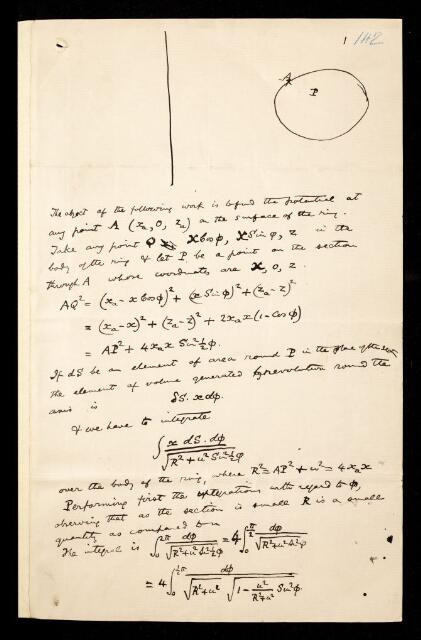 1 142
A
P
The object of the following work is to find the potential at
any point A (x_a, 0, z_a) on the surface of the ring.
Take any point Q x Cos φ, x Sin φ, z in the
body of the ring & let P be a point on the section
through A whose coordinates are x, 0, z.
AQ² = (x_a - x Cos φ)² + (x Sin φ)² + (z_a - z)²
= (x_a - x)² + (z_a - z)² + 2x_a x (1 - Cos φ)
= AP² + 4x_a x Sin² ½φ.
If dS be an element of area round P in the plane of the section
the element of volume generated by revolution round the
axis is
δS. x dφ.
& we have to integrate
∫ x dS. dφ / √(R² + u² Sin² ½φ)
over the body of the ring, where R² = AP² + u² = 4x_a x
Performing first the integrations with regard to φ,
observing that as the section is small R is a small
quantity as compared to u
The integral is ∫₀^{2π} dφ / √(R² + u² S² ½φ) = 4 ∫₀^{π/2} dφ / √(R² + u² S² φ)
= 4 ∫₀^{½π} dφ / √(R² + u²) √(1 - u²/(R² + u²) Sin² φ)